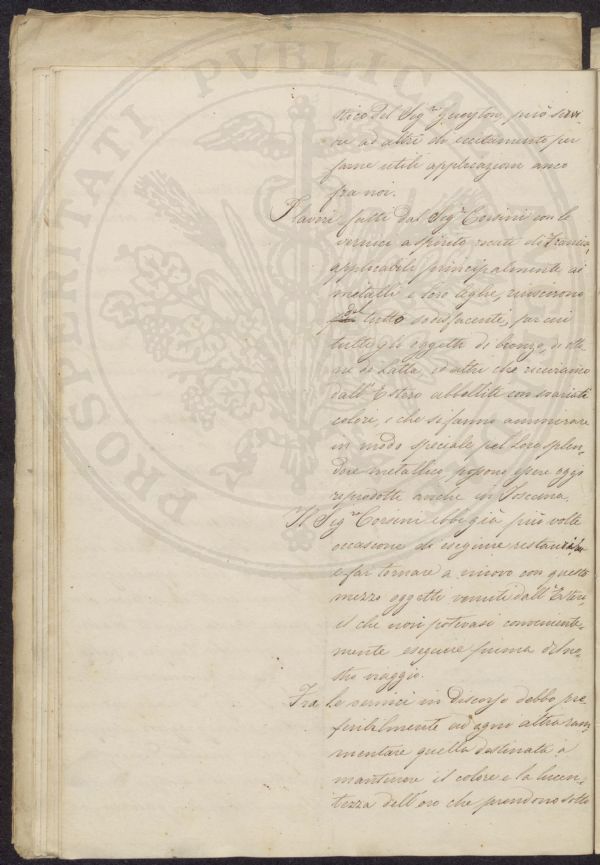 PROSPERITATI PUBLICAE
stico del Sig.r Gueyton, può servi
re ad altri di eccitamento per
farne utili applicazioni anco
fra noi.
I lavori fatti dal Sig.r Corsini con le
vernici a spirito recate di Francia,
applicabili principalmente ai
metalli e loro leghe, riuscirono
del tutto sodisfacenti, per cui
tutti gli oggetti di bronzo, di otto-
ne di Latta, ed altri che riceviamo
dall'Estero abbelliti con svariati
colori, e che si fanno ammirare
in modo speciale pel loro splen-
dore metallico possono essere oggi
riprodotti anche in Toscana.
Il Sig.r Corsini ebbe già più volte
occasione di eseguire restauri,
e far tornare a nuovo con questo
mezzo oggetti venuti dall'Estero,
il che non potevasi conveniente-
mente eseguire prima del no-
stro viaggio.
Fra le vernici in discorso debbo pre
feribilmente ad ogni altra ram
mentare quella destinata a
mantenere il colore e la lucen-
tezza dell'oro che prendono sotto